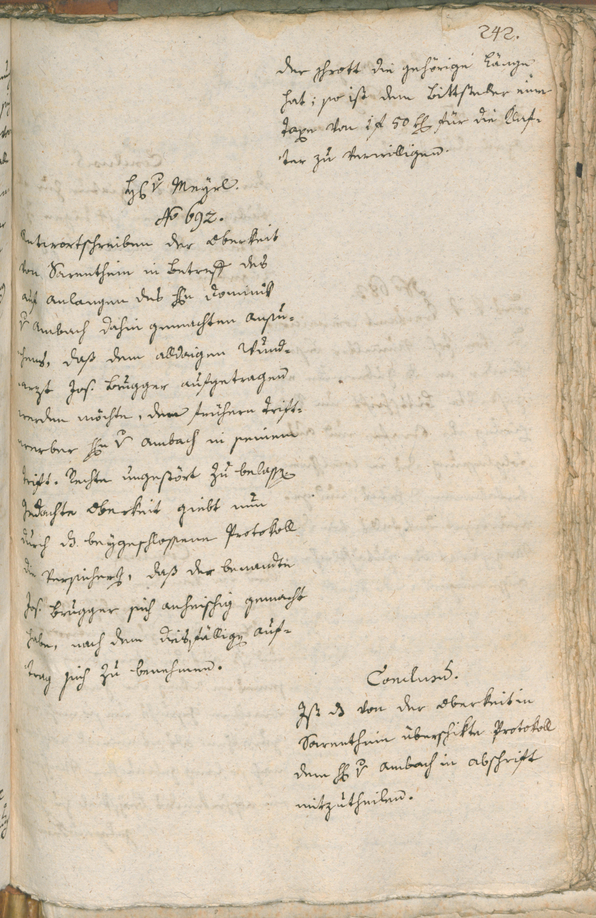 242.
der Schrott die gehörige Länge
hat; so ist dem Bittsteller eine
Taxe von 1 f 50 für die Klaf-
ter zu verwilligen.
v Meyrl.
No 692.
Antwortschreiben der Oberkeit
von Sarenthein in Betreff des
auf Anlangen des Hn Dominik
v Ambach dahin gemachten Ansu-
chens, daß dem aldaigen Wund-
arzt Jos. Brugger aufgetragen
werden möchte, dem frühern Trift-
werber Hn v Ambach in seinem
Trift-Rechte ungestört zu belassen
Gedachte Oberkeit giebt nun
durch d beygeschlossene Protokoll
die daß der benandte
Jos. Brugger sich anheischig gemacht
habe, nach dem Auf-
trag sich zu benehmen.
Conclusum.
Ist d von der Oberkeit in
Sarenthein überschikte Protokoll
dem H v Ambach in Abschrift
mitzutheilen.